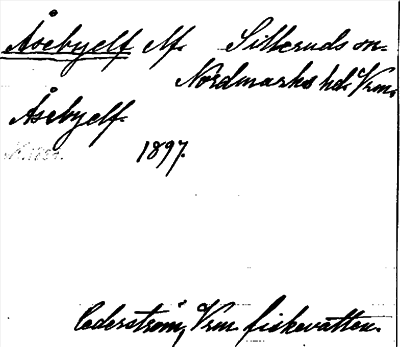 Åsebyelf Elf. Silleruds sn.
Nordmarks hd. Vrm.
Åsebyelf.
1897.
Cederström, Vrm fiskevatten.